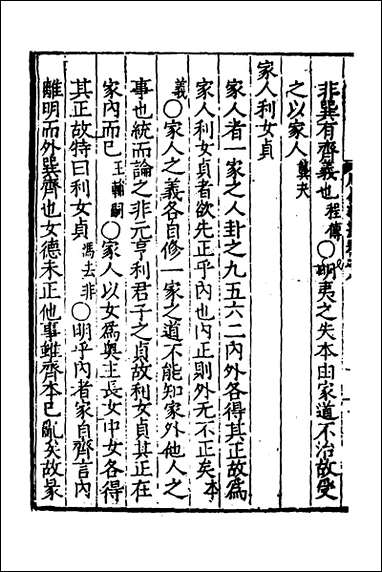 非巽有齊義也程傳〇明夷之失本由家道不治故受
之以家人龔夬
家人利女貞
家人者一家之人卦之九五六二內外各得其正故為
家人利女貞者欲先正乎內也內正則外无不正矣本
義〇家人之義各自修一家之道不能知家外他人之
事也統而論之非元亨利君子之貞故利女貞其正在
家內而已王輔嗣〇家人以女為奧主長女中女各得
其正故特曰利女貞馮去非〇明乎內者家自齊言內
離明而外巽齊也女德未正他事雖齊本已亂矣故彖